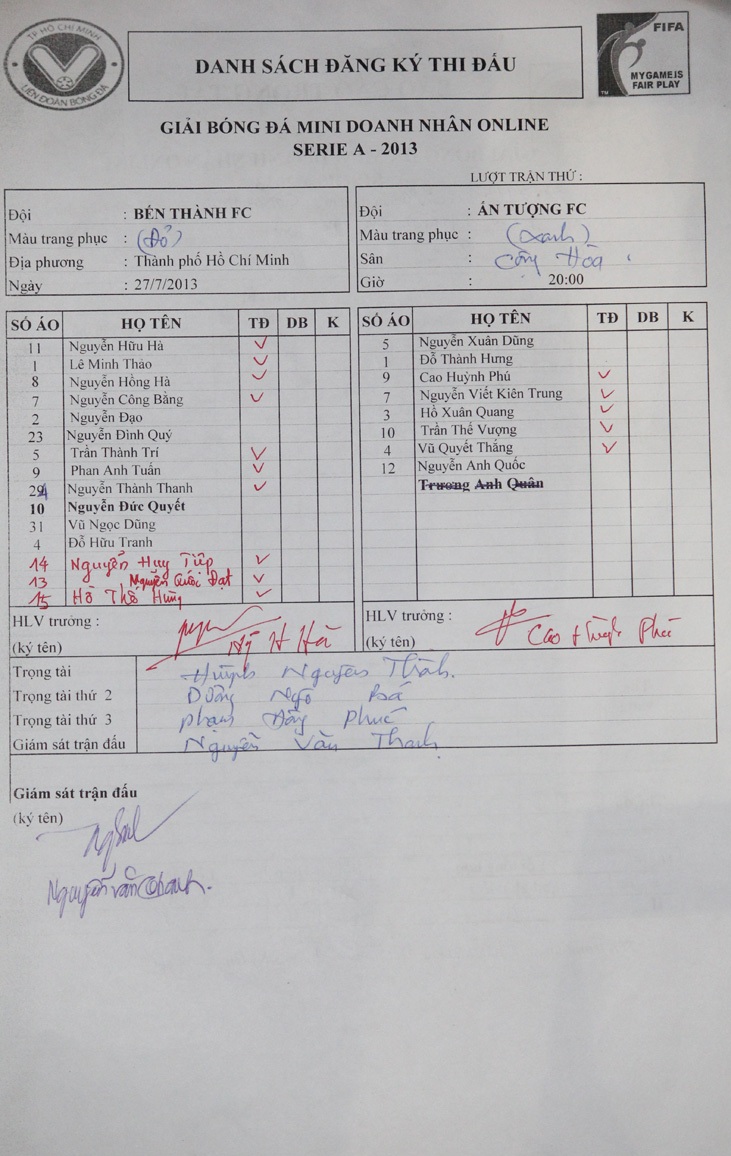 TP HỒ CHÍ MINH
LIÊN ĐOÀN BÓNG ĐÁ
DANH SÁCH ĐĂNG KÝ THI ĐẤU
FIFA
MY GAME IS
FAIR PLAY
GIẢI BÓNG ĐÁ MINI DOANH NHÂN ONLINE
SERIE A - 2013
LƯỢT TRẬN THỨ :
Đội : BẾN THÀNH FC
Màu trang phục : (Đỏ)
Địa phương : Thành phố Hồ Chí Minh
Ngày : 27/7/2013
Đội : ẤN TƯỢNG FC
Màu trang phục : (xanh)
Sân : Cộng Hòa
Giờ : 20:00
SỐ ÁO HỌ TÊN TĐ DB K
11 Nguyễn Hữu Hà ✓
1 Lê Minh Thảo ✓
8 Nguyễn Hồng Hà ✓
7 Nguyễn Công Bằng ✓
2 Nguyễn Đạo
23 Nguyễn Đình Quý
5 Trần Thành Trí ✓
9 Phan Anh Tuấn ✓
Nguyễn Thành Thanh ✓
10 Nguyễn Đức Quyết
31 Vũ Ngọc Dũng
4 Đỗ Hữu Tranh
14 Nguyễn Huy Tiệp ✓
13 Nguyễn Quốc Đạt ✓
15 Hồ Thế Hùng ✓
HLV trưởng :
(ký tên) H Hà
SỐ ÁO HỌ TÊN TĐ DB K
5 Nguyễn Xuân Dũng
1 Đỗ Thành Hưng
9 Cao Huỳnh Phú ✓
7 Nguyễn Viết Kiên Trung ✓
3 Hồ Xuân Quang ✓
10 Trần Thế Vượng ✓
4 Vũ Quyết Thắng ✓
12 Nguyễn Anh Quốc
Trương Anh Quân
HLV trưởng :
(ký tên) Cao Huỳnh Phú
Trọng tài Huỳnh Nguyên Thành.
Trọng tài thứ 2 Dương Ngô Bá
Trọng tài thứ 3 Phạm Hồng Phúc
Giám sát trận đấu Nguyễn Văn Thanh
Giám sát trận đấu
(ký tên)
Nguyễn Văn Thanh.